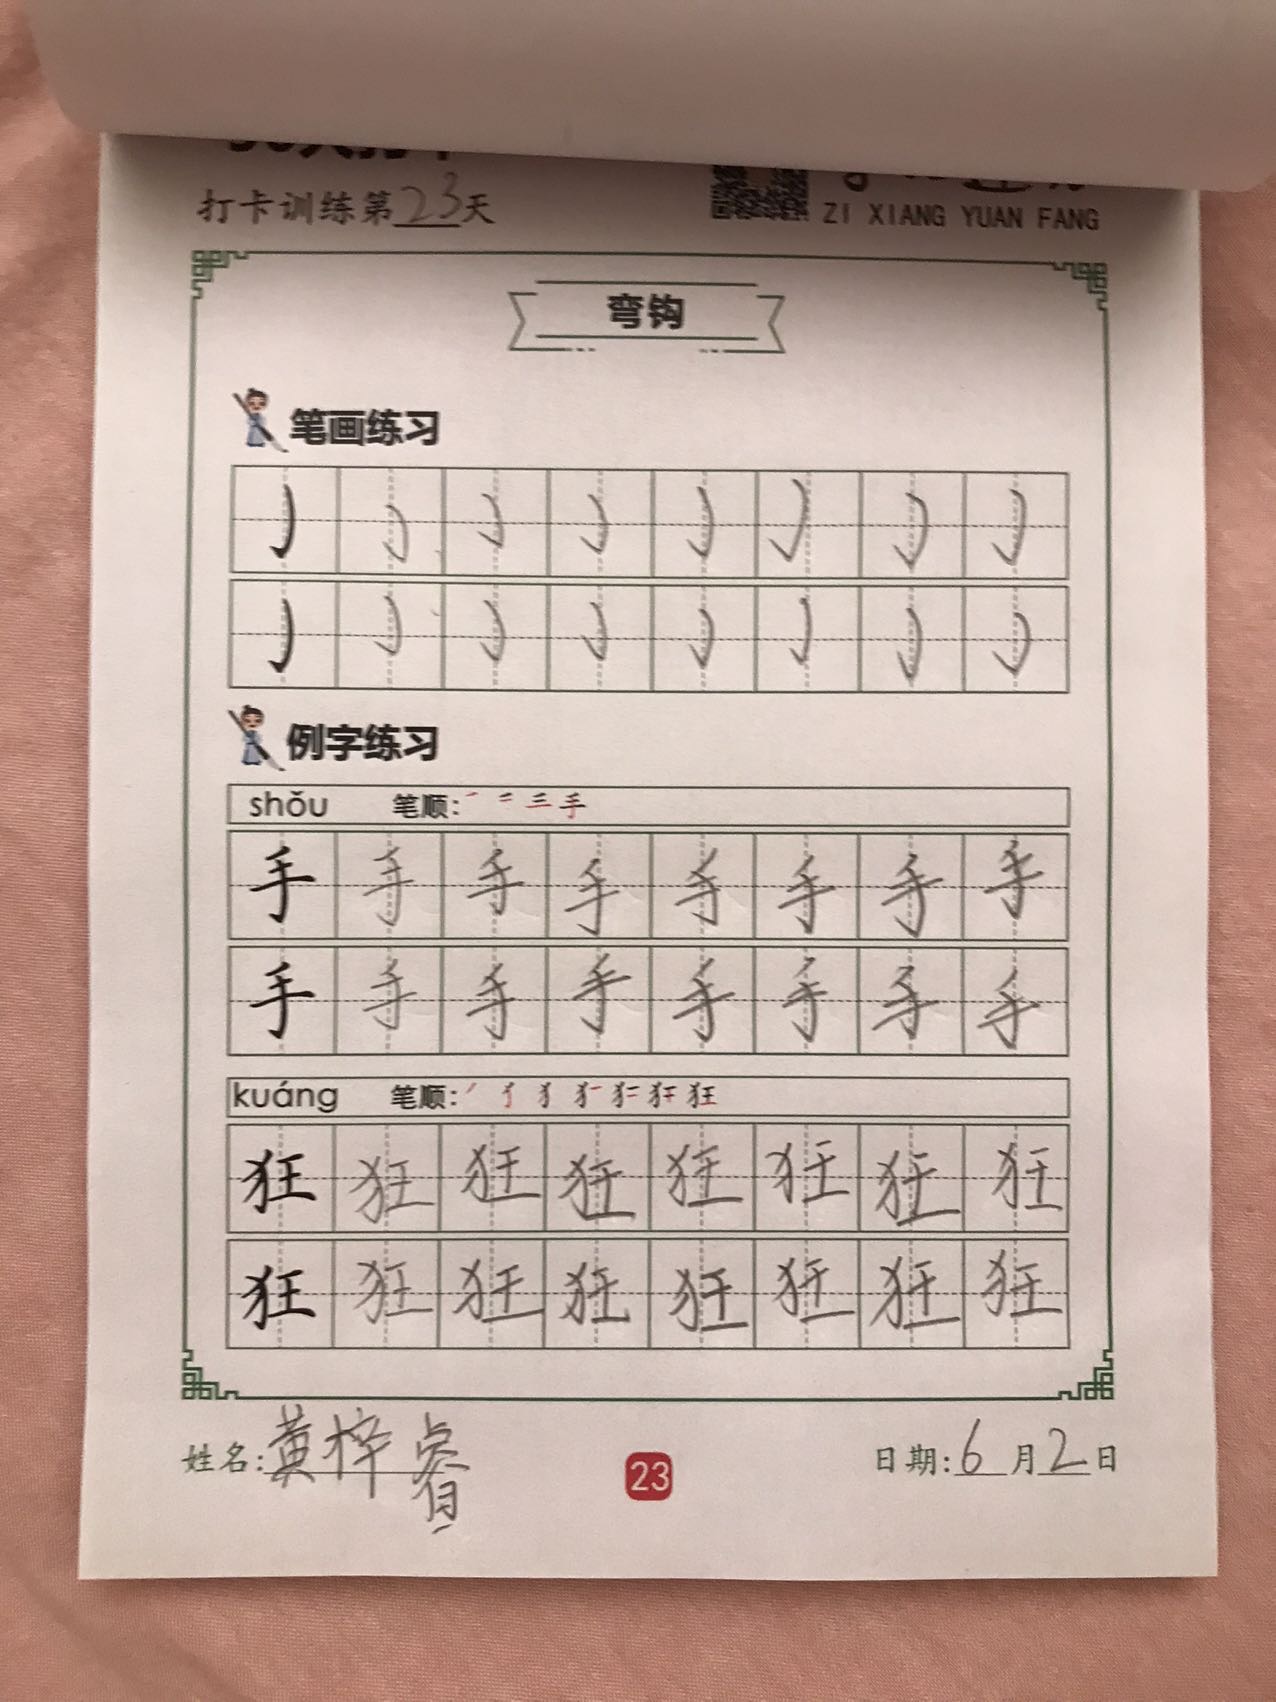 打卡训练第23天
ZI XIANG YUAN FANG
弯钩
笔画练习
例字练习
shǒu 笔顺: 一 二 三 手
手 手 手 手 手 手 手 手
手 手 手 手 手 手 手 手
kuáng 笔顺: 狂
狂 狂 狂 狂 狂 狂 狂 狂
狂 狂 狂 狂 狂 狂 狂 狂
姓名:黄梓睿 23 日期:6月2日